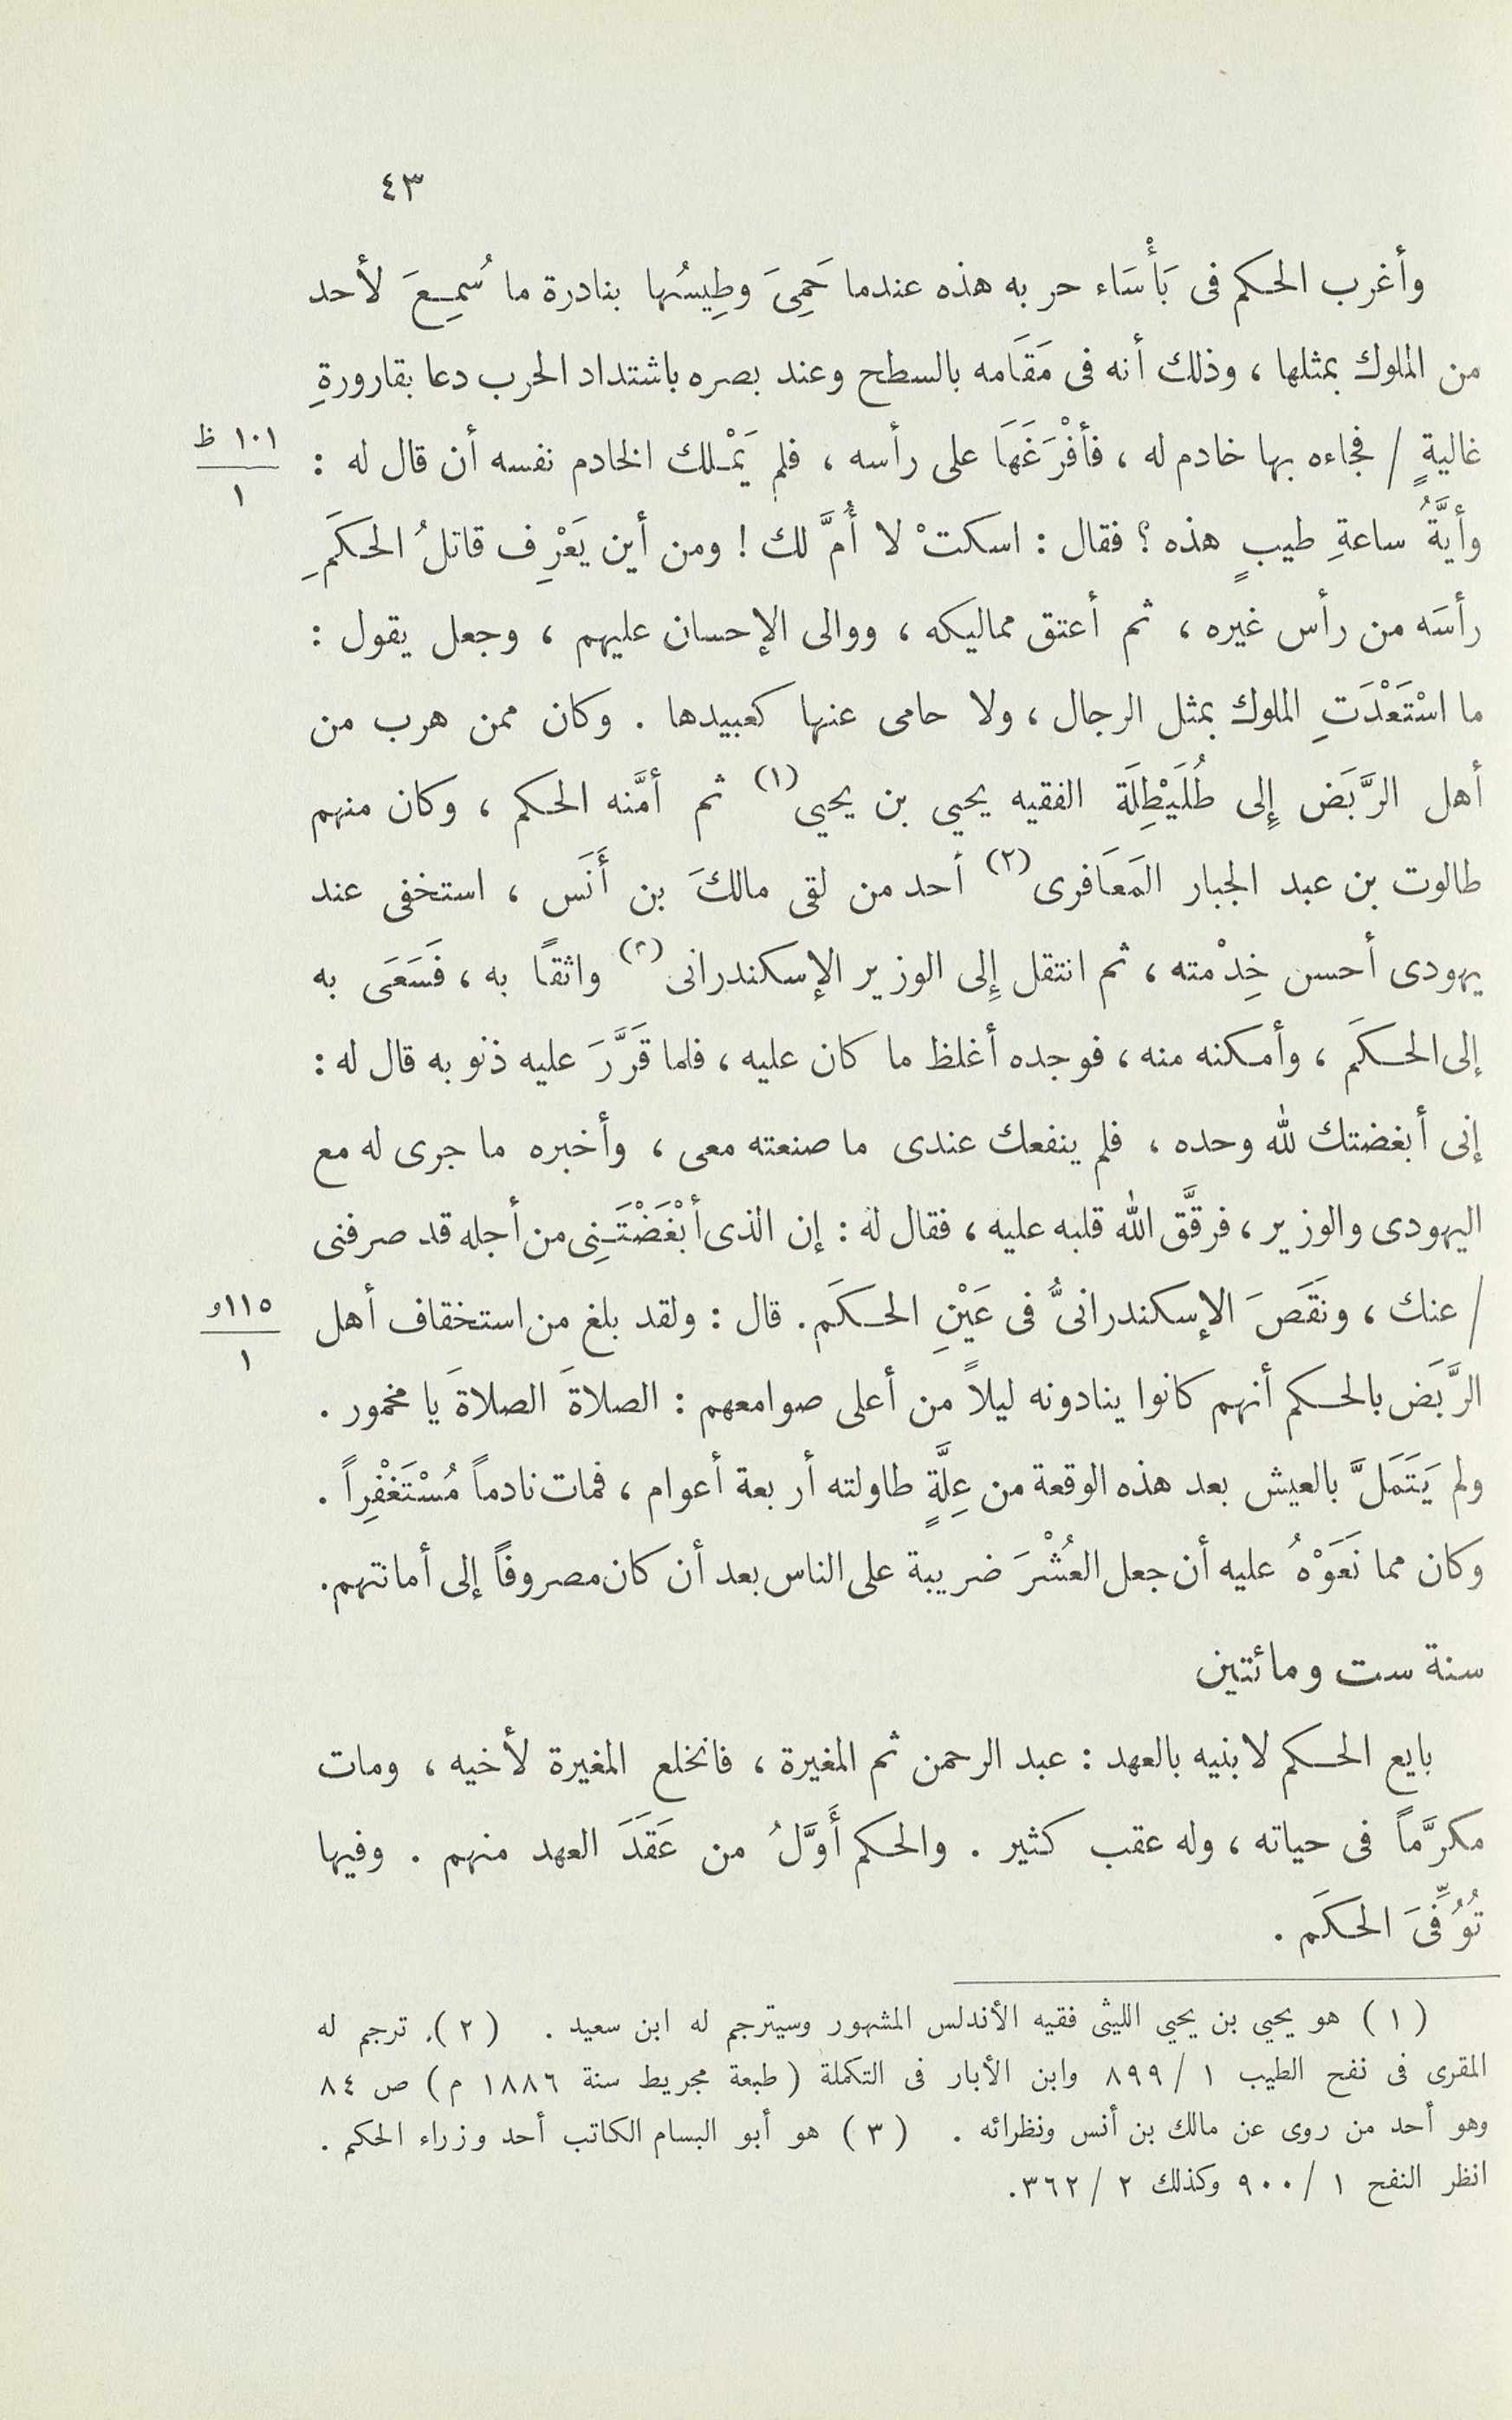 ٤٣
وأغرب الحكم فى بَأْسَاء حربه هذه عندما حَمِىَ وطِيسُها بنادرة ما سُمِعَ لأحد
من الملوك بمثلها ، وذلك أنه فى مَقَامه بالسطح وعند بصره باشتداد الحرب دعا بقارورةِ
غاليةٍ / فجاءه بها خادم له ، فأفْرَغَهَا على رأسه ، فلم يَمْلك الخادم نفسه أن قال له :
١٠١ ظ
١
وأيَّةُ ساعةِ طيبٍ هذه ؟ فقال : اسكتْ لا أُمَّ لك ! ومن أين يَعْرِف قاتلُ الحكَمِ
رأسَه من رأس غيره ، ثم أعتق مماليكه ، ووالى الإحسان عليهم ، وجعل يقول :
ما اسْتَعْدَتِ الملوك بمثل الرجال ، ولا حامى عنها كعبيدها . وكان ممن هرب من
أهل الرَّبَض إِلى طُلَيْطِلَة الفقيه يحيي بن يحيي (١) ثم أمَّنه الحكم ، وكان منهم
طالوت بن عبد الجبار المَعَافرى (٢) أحد من لقى مالكَ بن أَنَس ، استخفى عند
يهودى أحسن خِدْمته ، ثم انتقل إِلى الوزير الإسكندرانى (٣) واثقاً به ، فَسَعَى به
إلى الحكَم ، وأمكنه منه ، فوجده أغلظ ما كان عليه ، فلما قَرَّرَ عليه ذنوبه قال له :
إنى أبغضتك لله وحده ، فلم ينفعك عندى ما صنعته معى ، وأخبره ما جرى له مع
اليهودى والوزير ، فرقَّق الله قلبه عليه ، فقال له : إن الذى أبْغَضْتَنِى من أجله قد صرفنى
/ عنك ، ونَقَصَ الإسكندرانىُّ فى عَيْنِ الحكَم . قال : ولقد بلغ من استخفاف أهل
١١٥و
١
الرَّبَض بالحكم أنهم كانوا ينادونه ليلاً من أعلى صوامعهم : الصلاةَ الصلاةَ يا مخمور .
ولم يَتَمَلَّ بالعيش بعد هذه الوقعة من عِلَّةٍ طاولته أربعة أعوام ، فمات نادماً مُسْتَغْفِراً .
وكان مما نَعَوْهُ عليه أن جعل العُشْرَ ضريبة على الناس بعد أن كان مصروفاً إلى أمانتهم .
سنة ست ومائتين
بايع الحكم لابنيه بالعهد : عبد الرحمن ثم المغيرة ، فانخلع المغيرة لأخيه ، ومات
مكرَّماً فى حياته ، وله عقب كثير . والحكم أَوَّلُ من عَقَدَ العهد منهم . وفيها
تُوُفِّىَ الحكَم .
( ١ ) هو يحيي بن يحيي الليثى فقيه الأندلس المشهور وسيترجم له ابن سعيد . ( ٢ ) ترجم له
المقرى فى نفح الطيب ١ / ٨٩٩ وابن الأبار فى التكملة ( طبعة مجريط سنة ١٨٨٦ م ) ص ٨٤
وهو أحد من روى عن مالك بن أنس ونظرائه . ( ٣ ) هو أبو البسام الكاتب أحد وزراء الحكم .
انظر النفح ١ / ٩٠٠ وكذلك ٢ / ٣٦٢ .